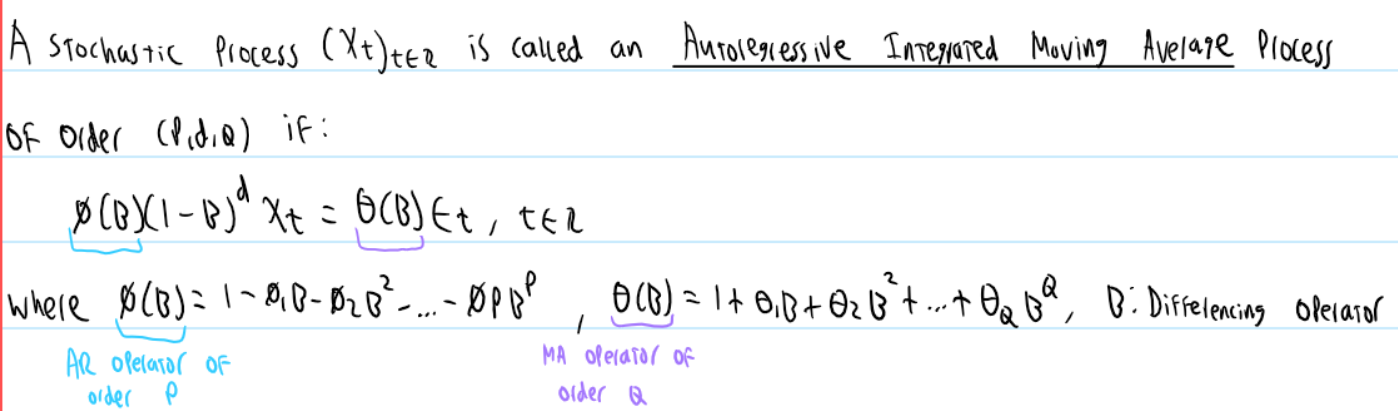 A Stochastic Process (Xt)t∈Z is called an Autoregressive Integrated Moving Average Process
OF Order (P,d,Q) if:
ø(B)(1-B)^d Xt = θ(B)Et, t∈Z
where ø(B) = 1 - ø₁B - ø₂B² - ... - øPB^P, θ(B) = 1 + θ₁B + θ₂B² + ... + θQ B^Q, B: Differencing Operator
AR Operator OF
order P
MA Operator OF
order Q